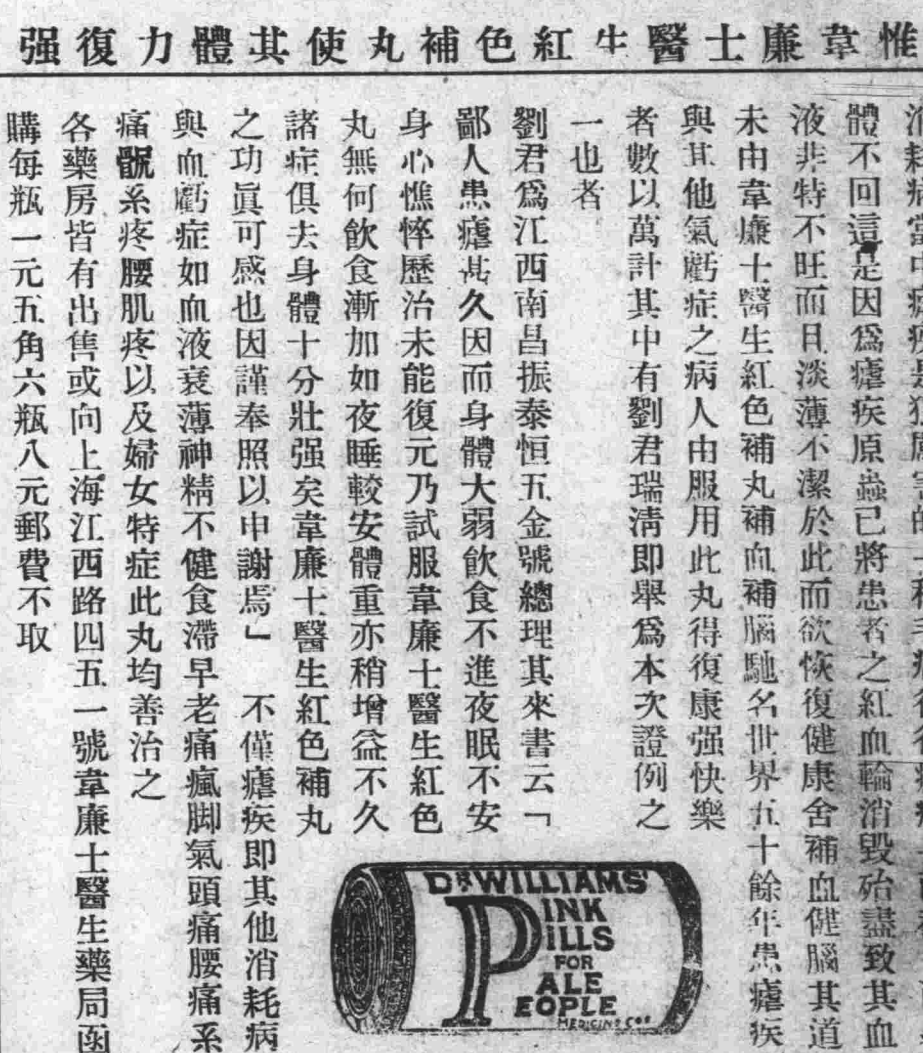 惟韋廉士醫生紅色補丸使其體力復强
消耗病當中瘧疾
體不回這是因爲瘧疾原蟲已將患者之紅血輪消毀殆盡致其血
液非特不旺而且淡薄不潔於此而欲恢復健康舍補血健腦其道
未由韋廉士醫生紅色補丸補血補腦馳名世界五十餘年患瘧疾
與其他氣虧症之病人由服用此丸得復康强快樂
者數以萬計其中有劉君瑞淸即舉爲本次證例之
一也者
劉君爲江西南昌振泰恒五金號總理其來書云「
鄙人患瘧甚久因而身體大弱飲食不進夜眠不安
身心憔悴歷治未能復元乃試服韋廉士醫生紅色
丸無何飲食漸加如夜睡較安體重亦稍增益不久
諸症俱去身體十分壯强矣韋廉士醫生紅色補丸
之功眞可感也因謹奉照以申謝焉」 不僅瘧疾即其他消耗病
與血虧症如血液衰薄神精不健食滯早老痛瘋脚氣頭痛腰痛系
痛髋系疼腰肌疼以及婦女特症此丸均善治之
各藥房皆有出售或向上海江西路四五一號韋廉士醫生藥局函
購每瓶一元五角六瓶八元郵費不取
DR WILLIAMS'
PINK
PILLS
FOR
PALE
PEOPLE
MEDICINE CO